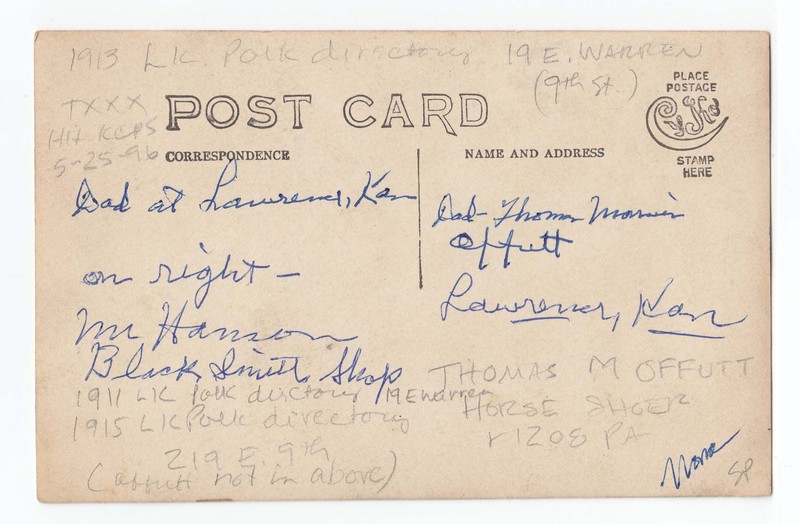 1913 LK. Polk directory 19 E. WARREN
(9th St.)
TXXX
Hit KCPS
5-25-96
POST CARD
PLACE
POSTAGE
CyKo
STAMP
HERE
CORRESPONDENCE
NAME AND ADDRESS
Dad at Lawrence, Kan
on right -
Mr Hanson
Black Smith Shop
1911 LK Polk dirctory 19 E Warren
1915 LK Polk directory
219 E 9th
(Offutt not in above)
Dad - Thomas Marvin
Offutt
Lawrence, Kan
THOMAS M OFFUTT
HORSE SHOER
r 1208 PA
SP